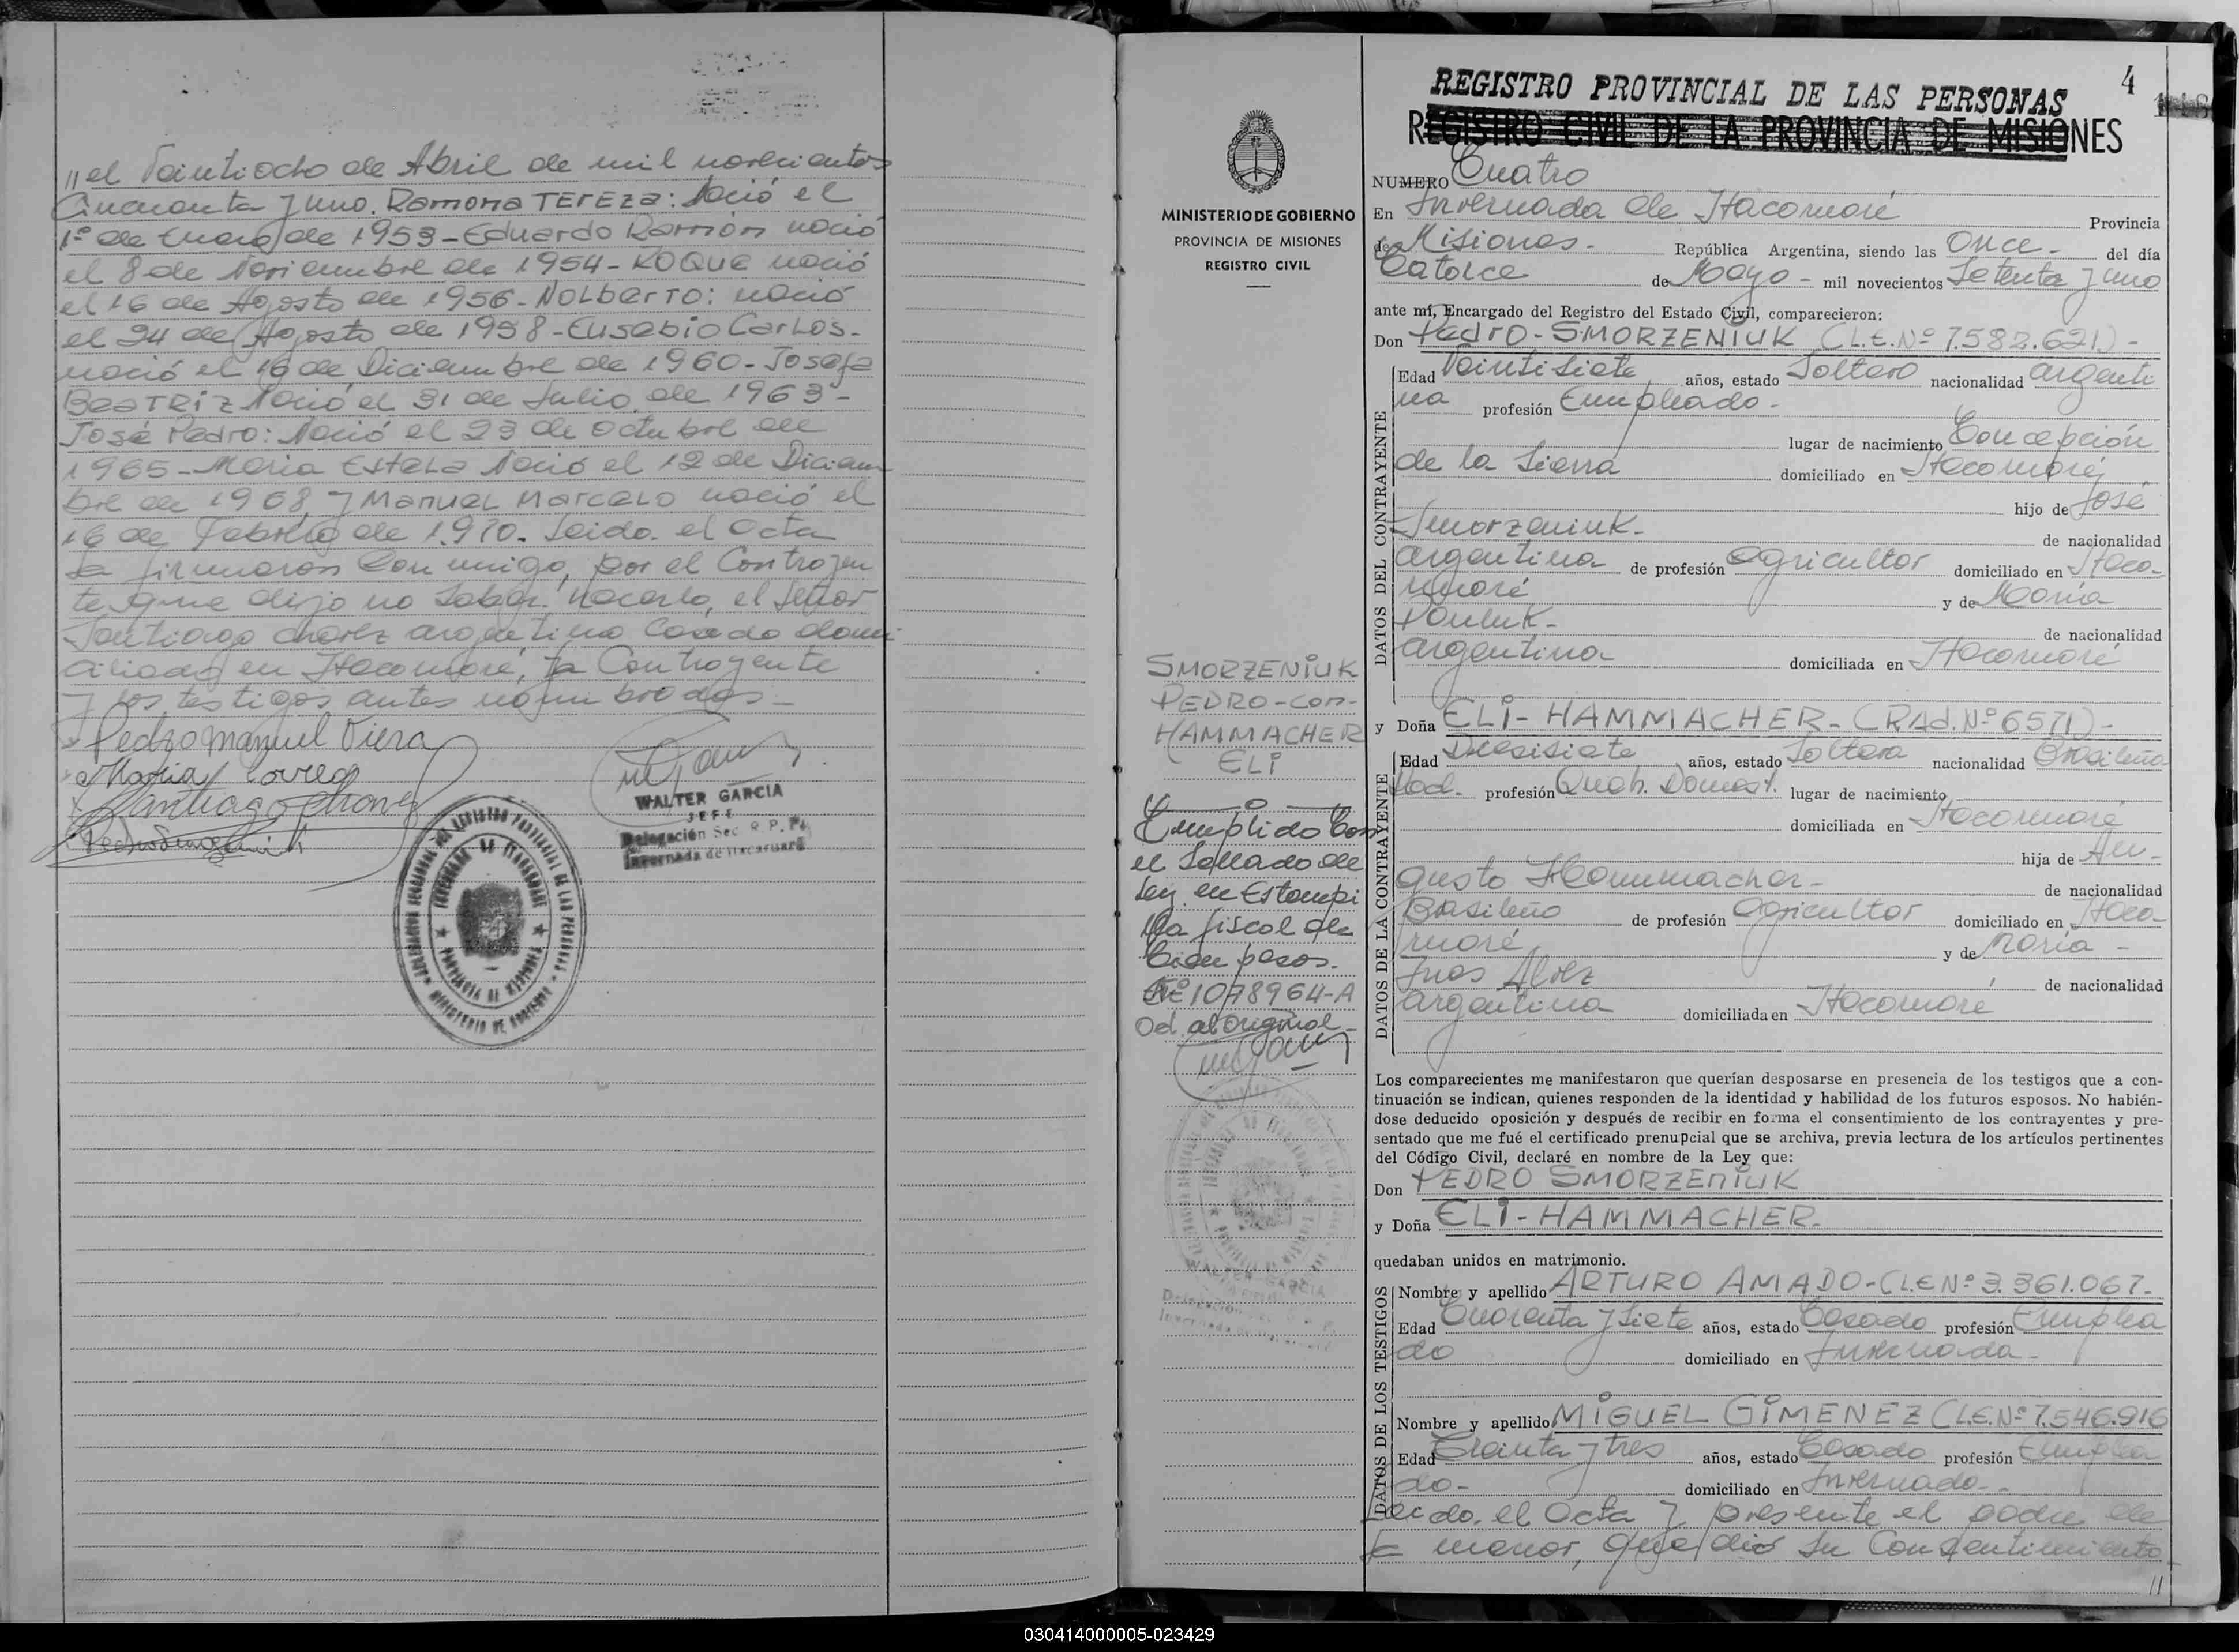 // el Veintiocho de Abril de mil novecientos
Cincuenta y uno. Ramona TEREZA: Nació el
1º de Enero de 1953 - Eduardo Ramón nació
el 8 de Noviembre de 1954 - ROQUE nació
el 16 de Agosto de 1956 - NOLBERTO: nació
el 24 de Agosto de 1958 - Eusebio Carlos -
nació el 16 de Diciembre de 1960 - Josefa
BEATRIZ Nació el 31 de Julio de 1963 -
José Pedro: Nació el 23 de Octubre de
1965 - María Estela Nació el 12 de Diciem
bre de 1968, y MANUEL MARCELO nació el
16 de Febrero de 1.970. Leido el Acta
la firmaron Conmigo, por el Contrayen
te que dijo no Saber hacerlo, el Señor
Santiago argentino Casado domi
ciliado en Itacaruaré, la Contrayente
y los testigos antes nombrados -
Pedro Manuel Viera
Maria Correa
Santiago
WALTER GARCIA
JEFE
Delegación Sec. R. P. P.
Invernada de Itacaruaré
MINISTERIO DE GOBIERNO
PROVINCIA DE MISIONES
REGISTRO CIVIL
SMORZENIUK
PEDRO - con -
HAMMACHER
ELI
Cumplido Con
el Sellado de
Ley en Estampi
lla fiscal de
Cien pesos.
Nº 1078964-A
Od. al Original
4
REGISTRO PROVINCIAL DE LAS PERSONAS
REGISTRO CIVIL DE LA PROVINCIA DE MISIONES
NUMERO Cuatro
En Invernada de Itacaruaré Provincia
de Misiones - República Argentina, siendo las Once - del día
Catorce de Mayo - mil novecientos Setenta y uno
ante mí, Encargado del Registro del Estado Civil, comparecieron:
Don Pedro - SMORZENIUK (L.E. Nº 7.582.621) -
DATOS DEL CONTRAYENTE
Edad Veintisiete años, estado Soltero nacionalidad argenti
na profesión Empleado -
lugar de nacimiento Concepción
de la Sierra domiciliado en Itacaruaré
hijo de José
Smorzeniuk - de nacionalidad
argentina de profesión Agricultor domiciliado en Itaca-
ruaré y de María
de nacionalidad
argentina domiciliada en Itacaruaré
y Doña ELI - HAMMACHER - (RAd. Nº 6571) -
DATOS DE LA CONTRAYENTE
Edad Diecisiete años, estado Soltera nacionalidad Brasileña
Nad. profesión Queh. Domest. lugar de nacimiento
domiciliada en Itacaruaré
hija de Au-
gusto Hammacher - de nacionalidad
Brasileño de profesión Agricultor domiciliado en Itaca
ruaré y de María -
Inés Alvez de nacionalidad
argentina domiciliada en Itacaruaré
Los comparecientes me manifestaron que querían desposarse en presencia de los testigos que a con-
tinuación se indican, quienes responden de la identidad y habilidad de los futuros esposos. No habién-
dose deducido oposición y después de recibir en forma el consentimiento de los contrayentes y pre-
sentado que me fué el certificado prenupcial que se archiva, previa lectura de los artículos pertinentes
del Código Civil, declaré en nombre de la Ley que:
Don PEDRO SMORZENIUK
y Doña ELI - HAMMACHER -
quedaban unidos en matrimonio.
DATOS DE LOS TESTIGOS
Nombre y apellido ARTURO AMADO - (L.E Nº 3.361.067 -
Edad Cuarenta y Siete años, estado Casado profesión Emplea
do domiciliado en Invernada -
Nombre y apellido MIGUEL GIMENEZ (L.E. Nº 7.546.916
Edad Treinta y tres años, estado Casado profesión Emplea
do - domiciliado en Invernada -
Leido el Acta y presente el padre de
la menor, que dió su Consentimiento
//
030414000005-023429